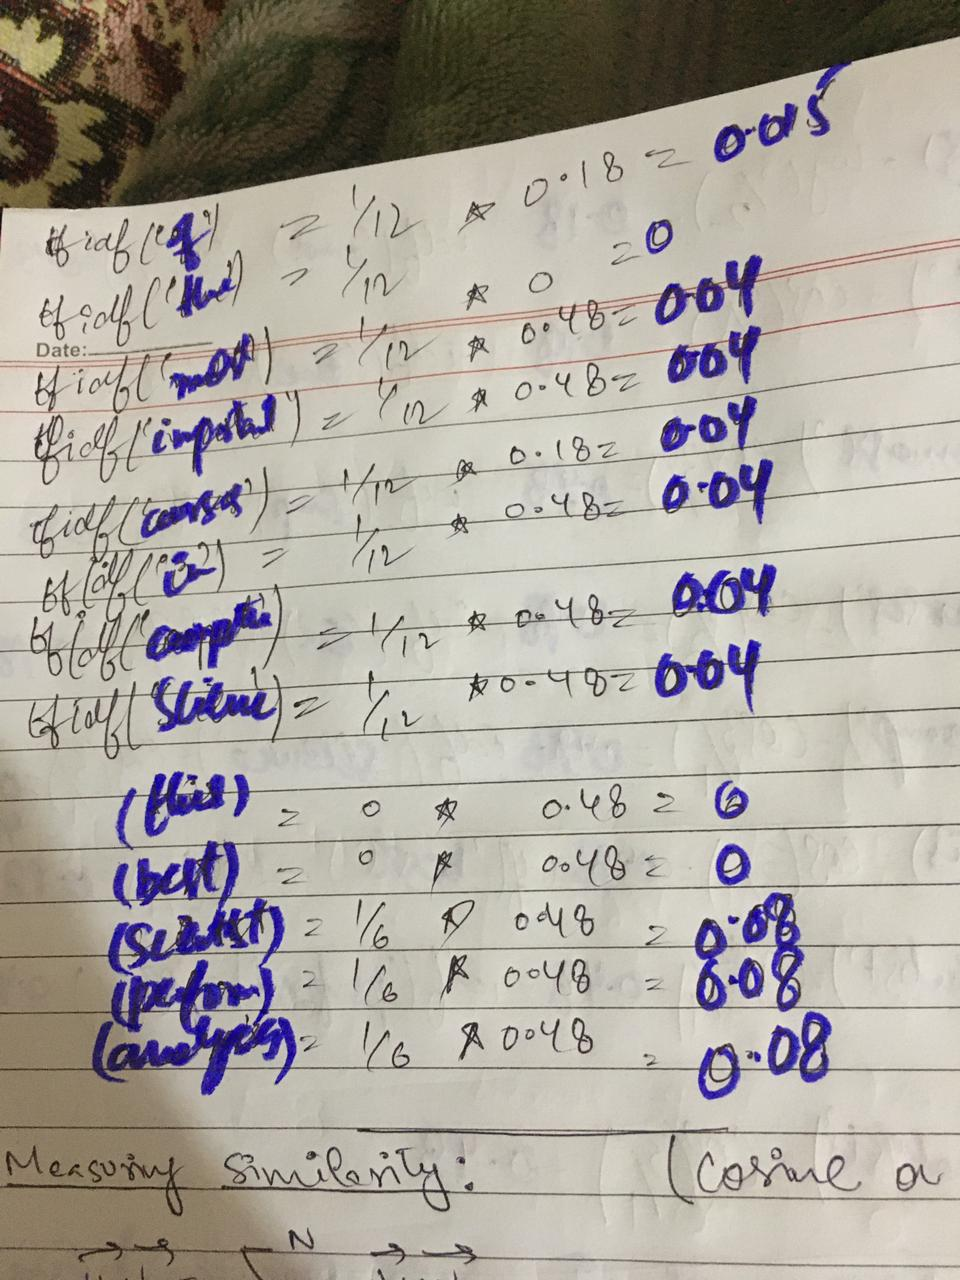 tfidf('of') = 1/12 * 0.18 = 0.015
tfidf('the') = 1/12 * 0 = 0
Date:
tfidf('most') = 1/12 * 0.48 = 0.04
tfidf('important') = 1/12 * 0.48 = 0.04
tfidf('courses') = 1/12 * 0.18 = 0.04
tfidf('in') = 1/12 * 0.48 = 0.04
tfidf(') = 1/12 * 0.48 = 0.04
tfidf('Science') = 1/12 * 0.48 = 0.04
(this) = 0 * 0.48 = 0
(best) = 0 * 0.48 = 0
= 1/6 * 0.48 = 0.08
(perform) = 1/6 * 0.48 = 0.08
(analysis) = 1/6 * 0.48 = 0.08
Measuring Similarity: (Cosine
→ → N → →